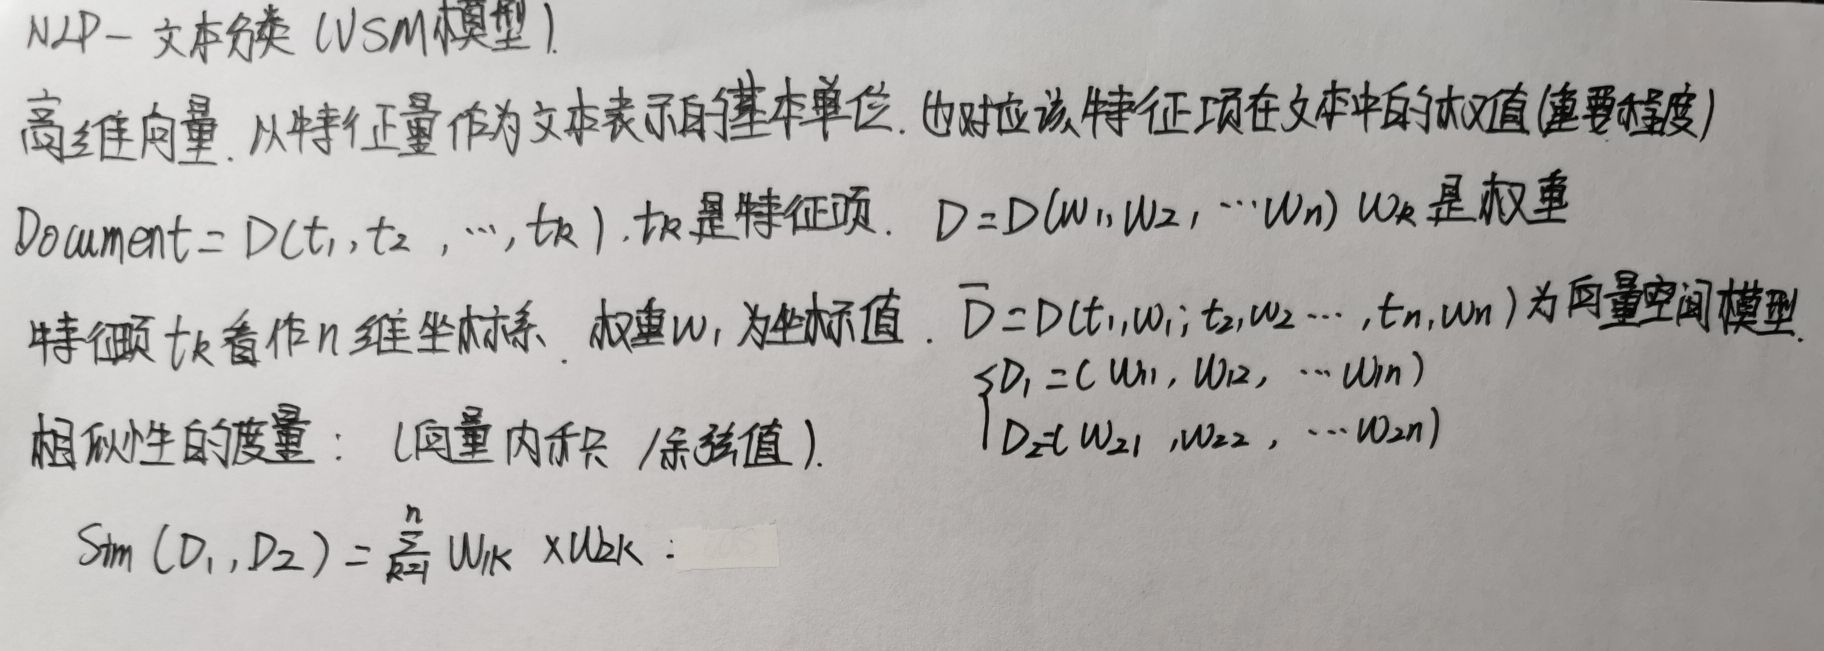 NLP-文本分类(VSM模型).
高维向量.以特征量作为文本表示的基本单位.也对应该特征项在文本中的权值(重要程度)
Document=D(t₁,t₂,…,tk).tk是特征项. D=D(w₁,w₂,…wn) wk是权重
特征项tk看作n维坐标系.权重w₁为坐标值. D̅=D(t₁,w₁;t₂,w₂…,tn,wn)为向量空间模型.
{D₁=(w₁₁,w₁₂,…w₁n)
相似性的度量:(向量内积/余弦值).
D₂=(w₂₁,w₂₂,…w₂n)
Sim(D₁,D₂)=∑ⁿₖ₌₁ w₁k×w₂k: